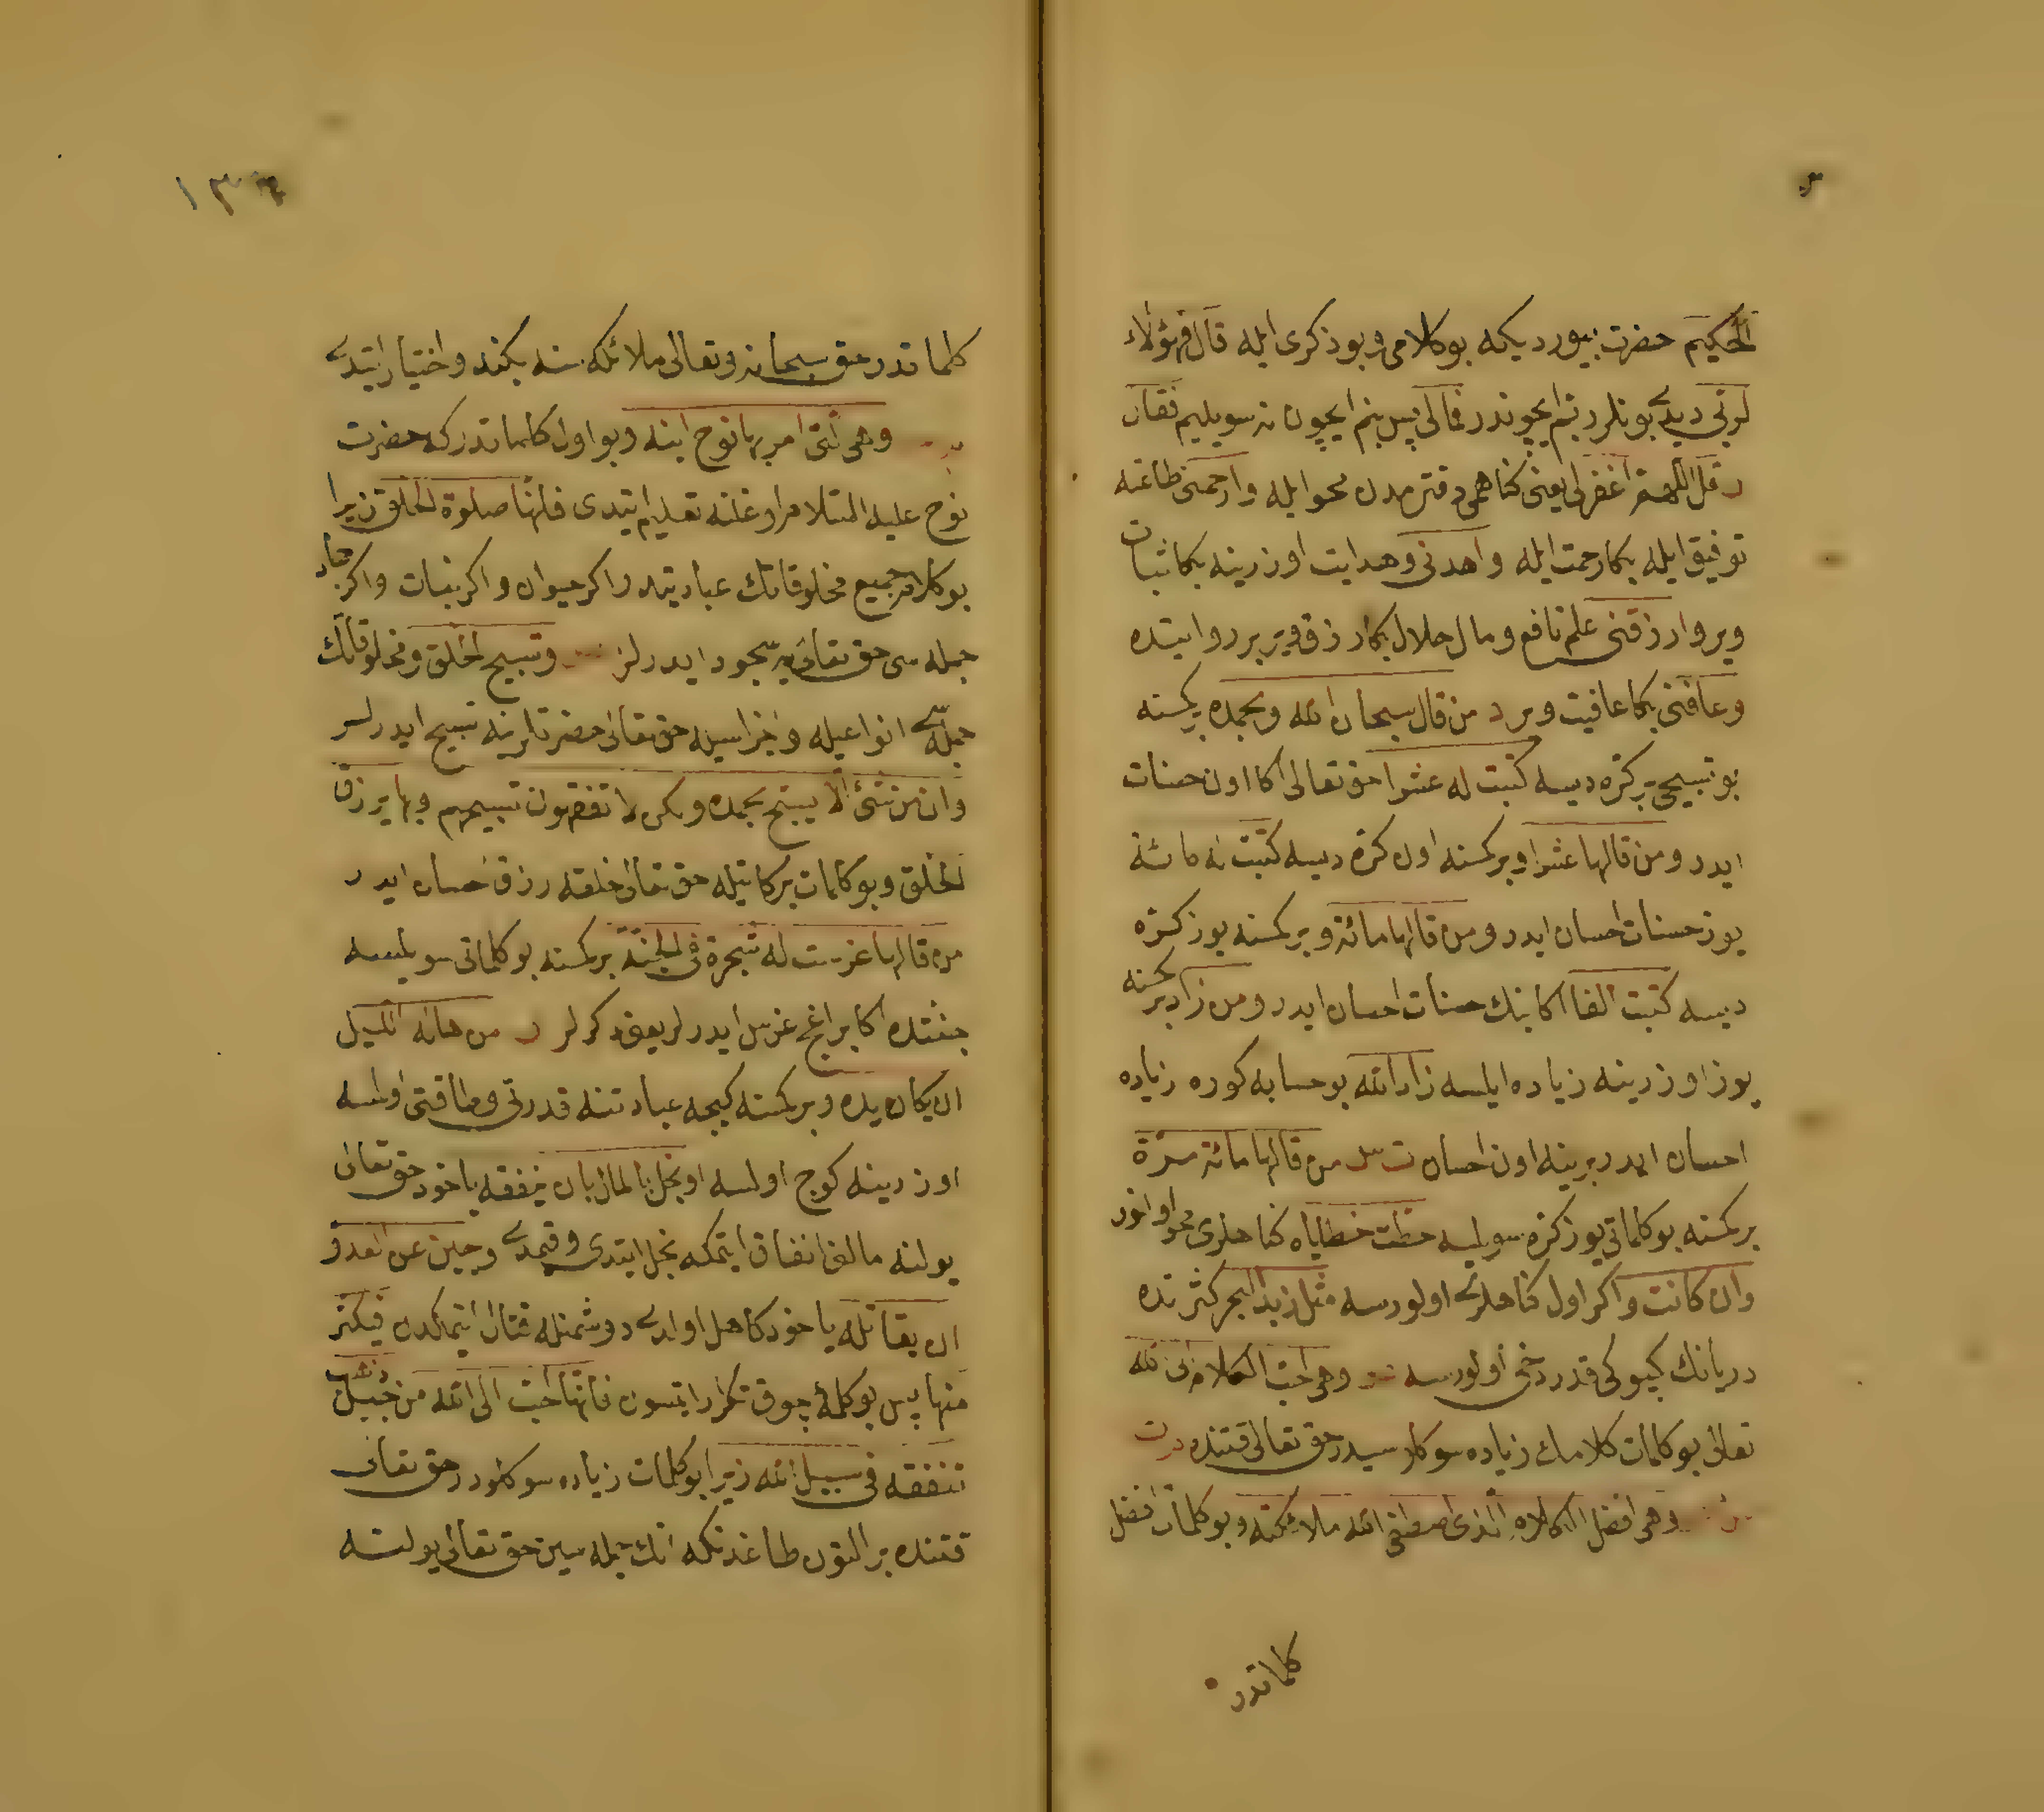 الحكيم حضرت بيورديكه بو كلامی و بو ذكری ايله قال فهؤلاء
لربي ديدی بونلر ربم ايچوندر فمالی پس بنم ايچون نه سويليم فقال
د قل اللهم اغفر لی يعنی كناهمی دفترمدن محو ايله وارحمنی طاعته
توفيق ايله بكا رحمت ايله واهدنی وهدايت اوزرينه بكا ثبات
وير وارزقنی علم نافع ومال حلال بكا رزق وير بر روايتده
وعافنی بكا عافيت وير د من قال سبحان الله وبحمده بركسنه
بو تسبيحی بر كره ديسه كتبت له عشرا حق تعالی اكا اون حسنات
ايدر ومن قالها عشرا وبركسنه اون كره ديسه كتبت له مائة
يوز حسنات احسان ايدر ومن قالها مائة وبركسنه يوز كره
ديسه كتبت الفا اكا بنك حسنات احسان ايدر ومن زاد بركسنه
يوز اوزرينه زياده ايلسه زاد الله بو حسابه كوره زياده
احسان ايدر برينه اون احسان ت س من قالها مائة مرة
بركسنه بو كلماتی يوز كره سويلسه حطت خطاياه كناهلری محو اولنور
وان كانت واكر اول كناهلری اولورسه مثل زبد البحر كثرتده
دريانك كپوكی قدر دخی اولورسه وهی احب الكلام الی الله
تعالی بو كلمات كلامك زياده سوكلوسيدر حق تعالی قتنده م ت
س وهی افضل الكلام الذی اصطفی الله ملائكته وبو كلمات افضل
كلماتدر
١٣
كلماتدر حق سبحانه وتعالی ملائكه سنه بكندی واختيار ايتدی
وهی التی امر بها نوح ابنه وبو اول كلماتدر كه حضرت
نوح عليه السلام اوغلنه تعليم ايتدی فانها صلوة الخلق زيرا
بو كلام جميع مخلوقاتك عبادتيدر اكر حيوان واكر نبات واكر جماد
جمله سی حق تعالی يه سجود ايدرلر وتسبيح الخلق ومخلوقاتك
جمله سی انواعيله واجزاسيله حق تعالی حضرتلرينه تسبيح ايدرلر
وان من شئ الا يسبح بحمده ولكن لا تفقهون تسبيحهم وبها يرزق
الخلق وبو كلمات بركاتيله حق تعالی خلقه رزق احسان ايدر
من قالها غرست له شجرة فی الجنة بركسنه بو كلماتی سويلسه
جنتده اكا بر اغج غرس ايدرلر يعنی ديكرلر ر من هاله الليل
ان يكابده وبركسنه كيجه عبادتنه قدرتی وطاقتی اولمسه
اوزرينه كوج اولسه او بخل بالمال ان ينفقه ياخود حق تعالی
يولنه مالنی انفاق ايتمكه بخل ايتدی وقيمدی وجبن عن العدو
ان يقاتله ياخود كاهل اولدی دوشمنله قتال ايتمكدن فليكثر
منها پس بو كلمه‌ی چوق تكرار ايتسون فانها احب الی الله من جبل ذهب
تنفقه فی سبيل الله زيرا بو كلمات زياده سوكلودر حق تعالی
قتنده بر التون طاغندنكه انك جمله سين حق تعالی يولنه